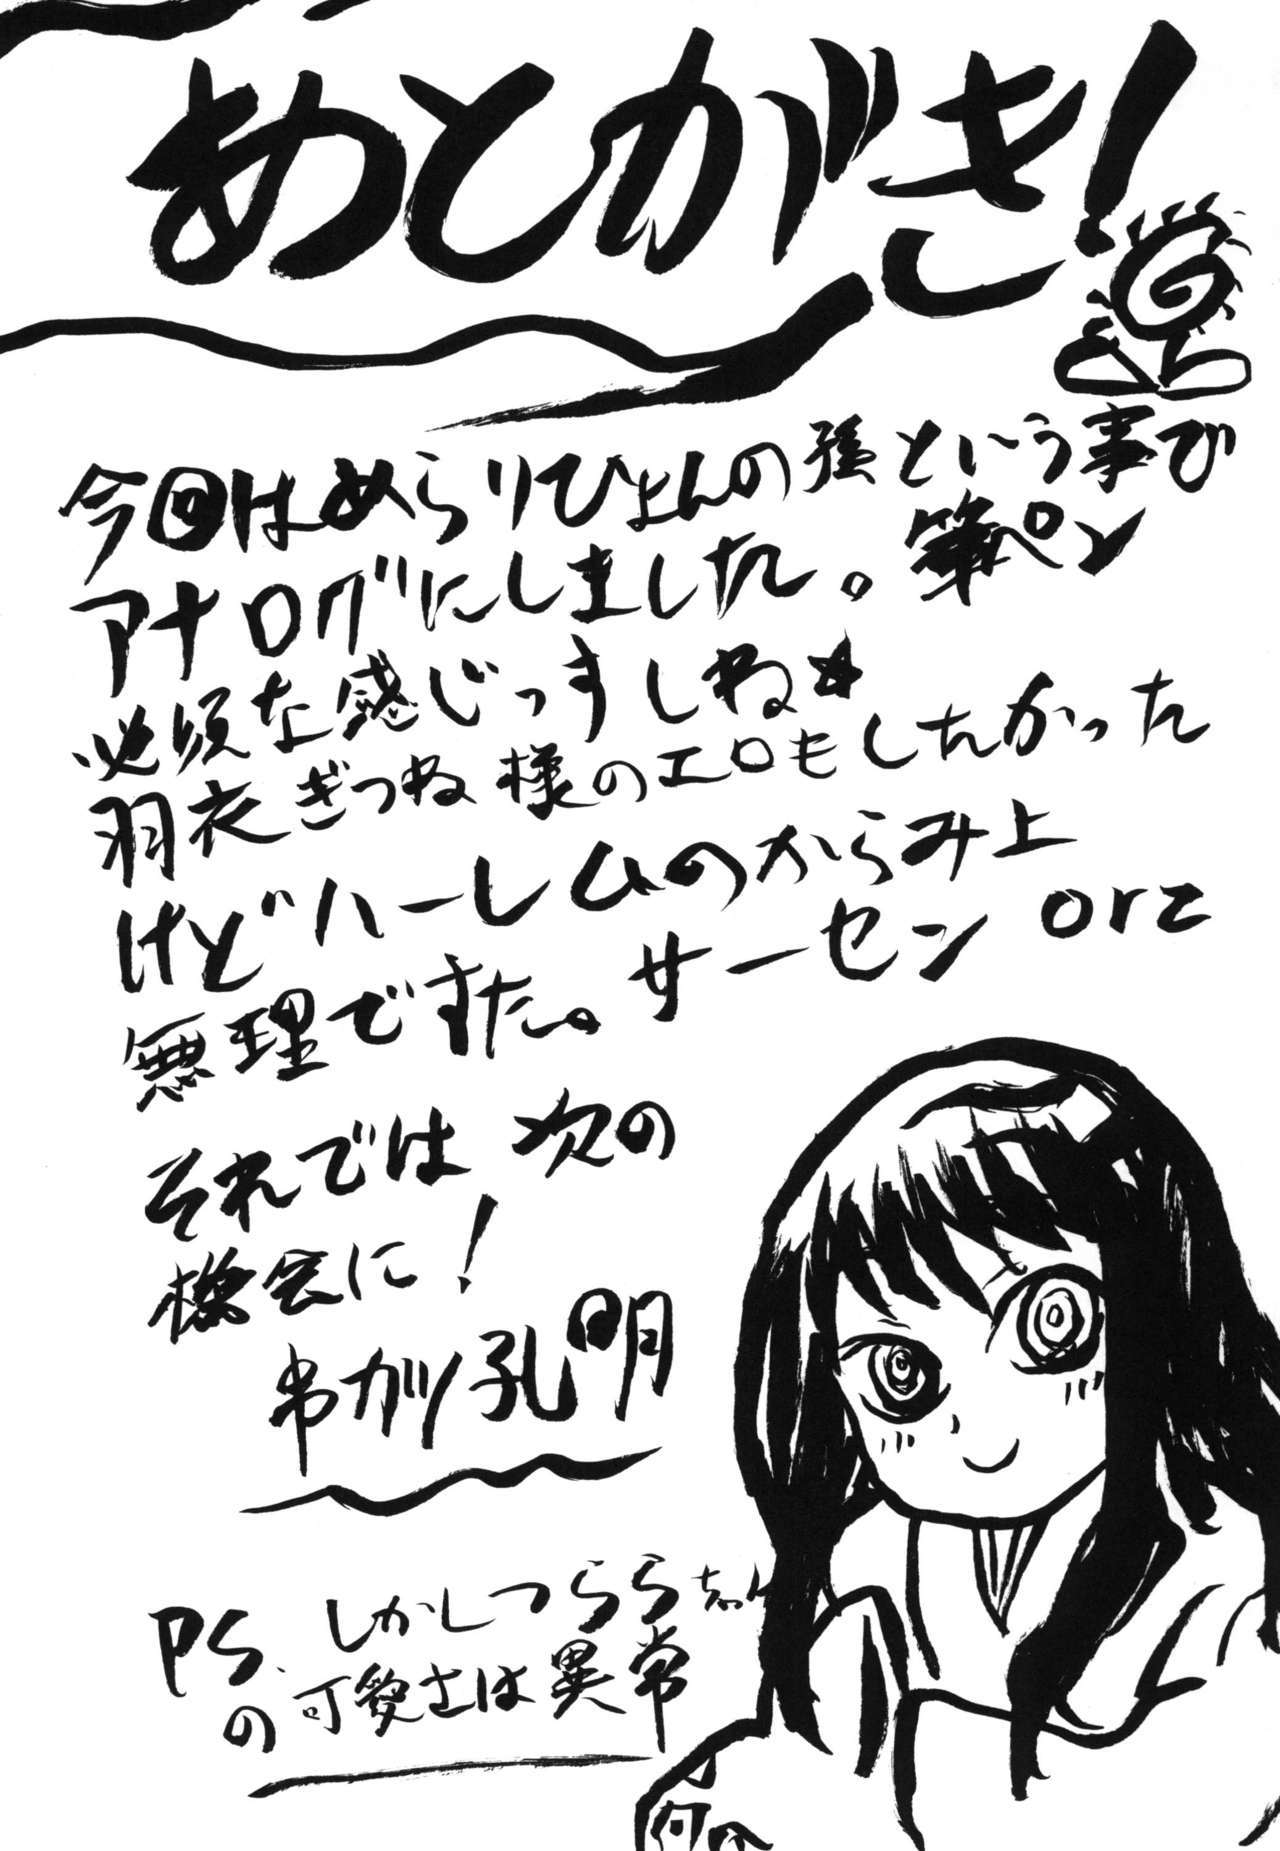 あとがき!
今回はぬらりひょんの孫という事で
アナログにしました。筆ペン
必須な感じっすしね★
羽衣ぎつね様のエロもしたかった
けどハーレムのからみ上
無理ですた。サーセン orz
それでは 次の
機会に!
串カツ孔明
PS、しかしつららちゃん
の可愛さは異常